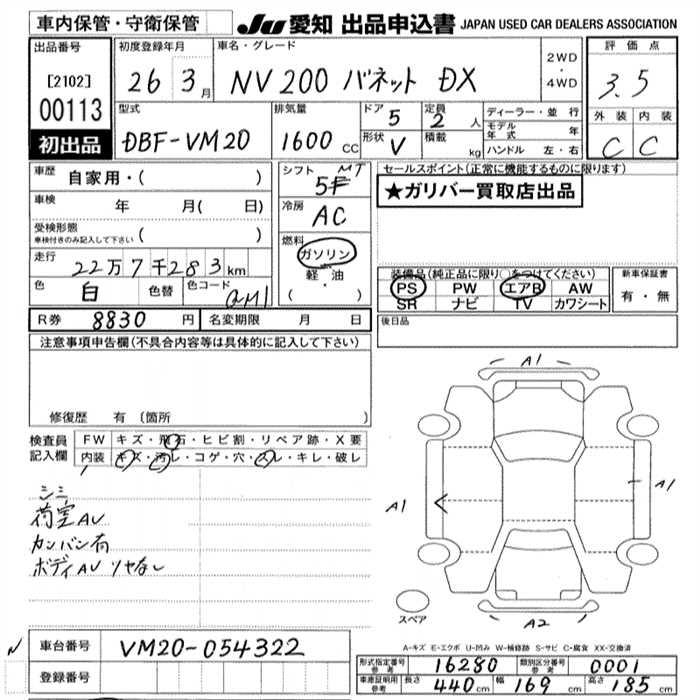 車内保管・守衛保管 JU 愛知 出品申込書 JAPAN USED CAR DEALERS ASSOCIATION
出品番号 初度登録年月 車名・グレード 評価点
[2102] 26 3月 NV200 バネット DX 2WD・4WD 3.5
00113 型式 排気量 ドア 5 定員 2人 ディーラー・並行 外装 内装
初出品 DBF-VM20 1600cc 形状 V 積載 kg モデル年式 年 C C
ハンドル 左・右
車歴 自家用・( ) シフト 5F MT セールスポイント(正常に機能するものに限ります)
車検 年 月( 日) 冷房 AC ★ガリバー買取店出品
受検形態 車検付きのみ記入して下さい ( )
燃料 ガソリン・軽油 ( )
走行 22万7千283km 装備品(純正品に限り○をつけてください) 新車保証書
色 白 色替 色コード QM1 PS PW エアB AW 有・無
SR ナビ TV カワシート
R券 8830円 名変期限 月 日 後日品
注意事項申告欄(不具合内容等は具体的に記入して下さい)
修復歴 有 (箇所
検査員記入欄 FW キズ・飛石・ヒビ割・リペア跡・X要
内装 キズ・汚レ・コゲ・穴・スレ・キレ・破レ
シミ
荷室AU
カンバン有
ボディAU ツヤなし
A1
A1
A1
A2
スペア
A-キズ E-エクボ U-凹み W-補修跡 S-サビ C-腐食 XX-交換済
車台番号 VM20-054322
登録番号
形式指定番号 参考 16280 類別区分番号 参考 0001
車庫証明用 参考 長さ 440cm 幅 169cm 高さ 185cm